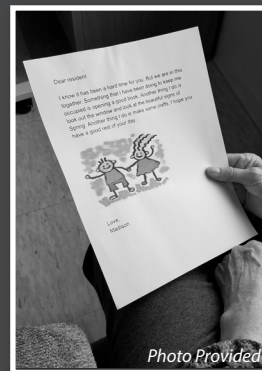 Dear resident
I know it has been a hard time for you. But we are in this
together. Something that I have been doing to keep me
occupied is opening a good book. Another thing I do is
look out the window and look at the beautiful signs of
Spring. Another thing I do is make some crafts. I hope you
have a good rest of your day.
Love,
Madison
Photo Provided